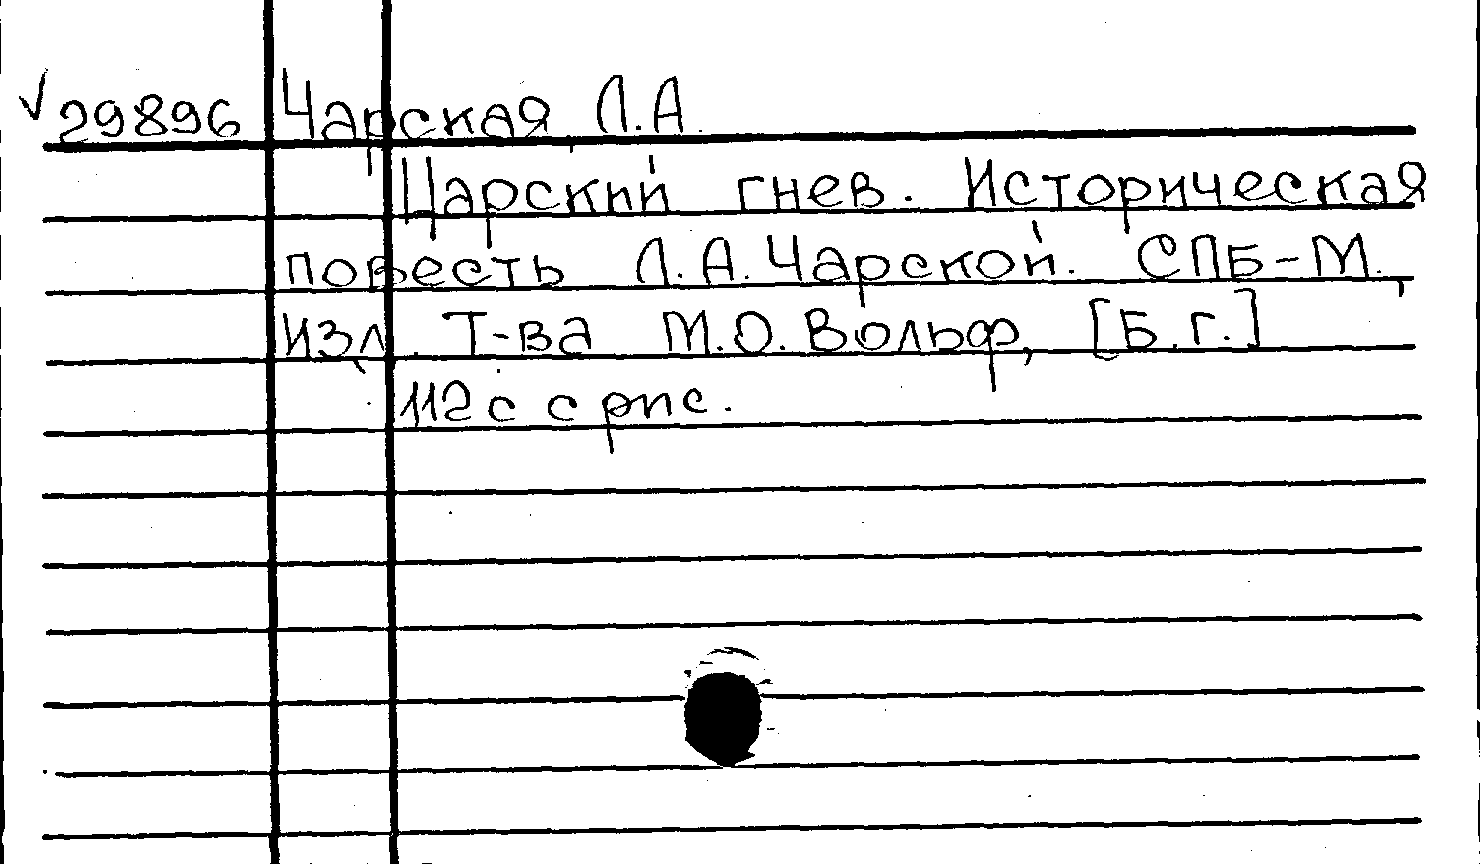 √ 29896 Чарская Л.А.
Царский гнев. Историческая
повесть Л.А. Чарской. СПБ-М.,
Изд. Т-ва М.О. Вольф, [Б.г.]
112 с с рис.